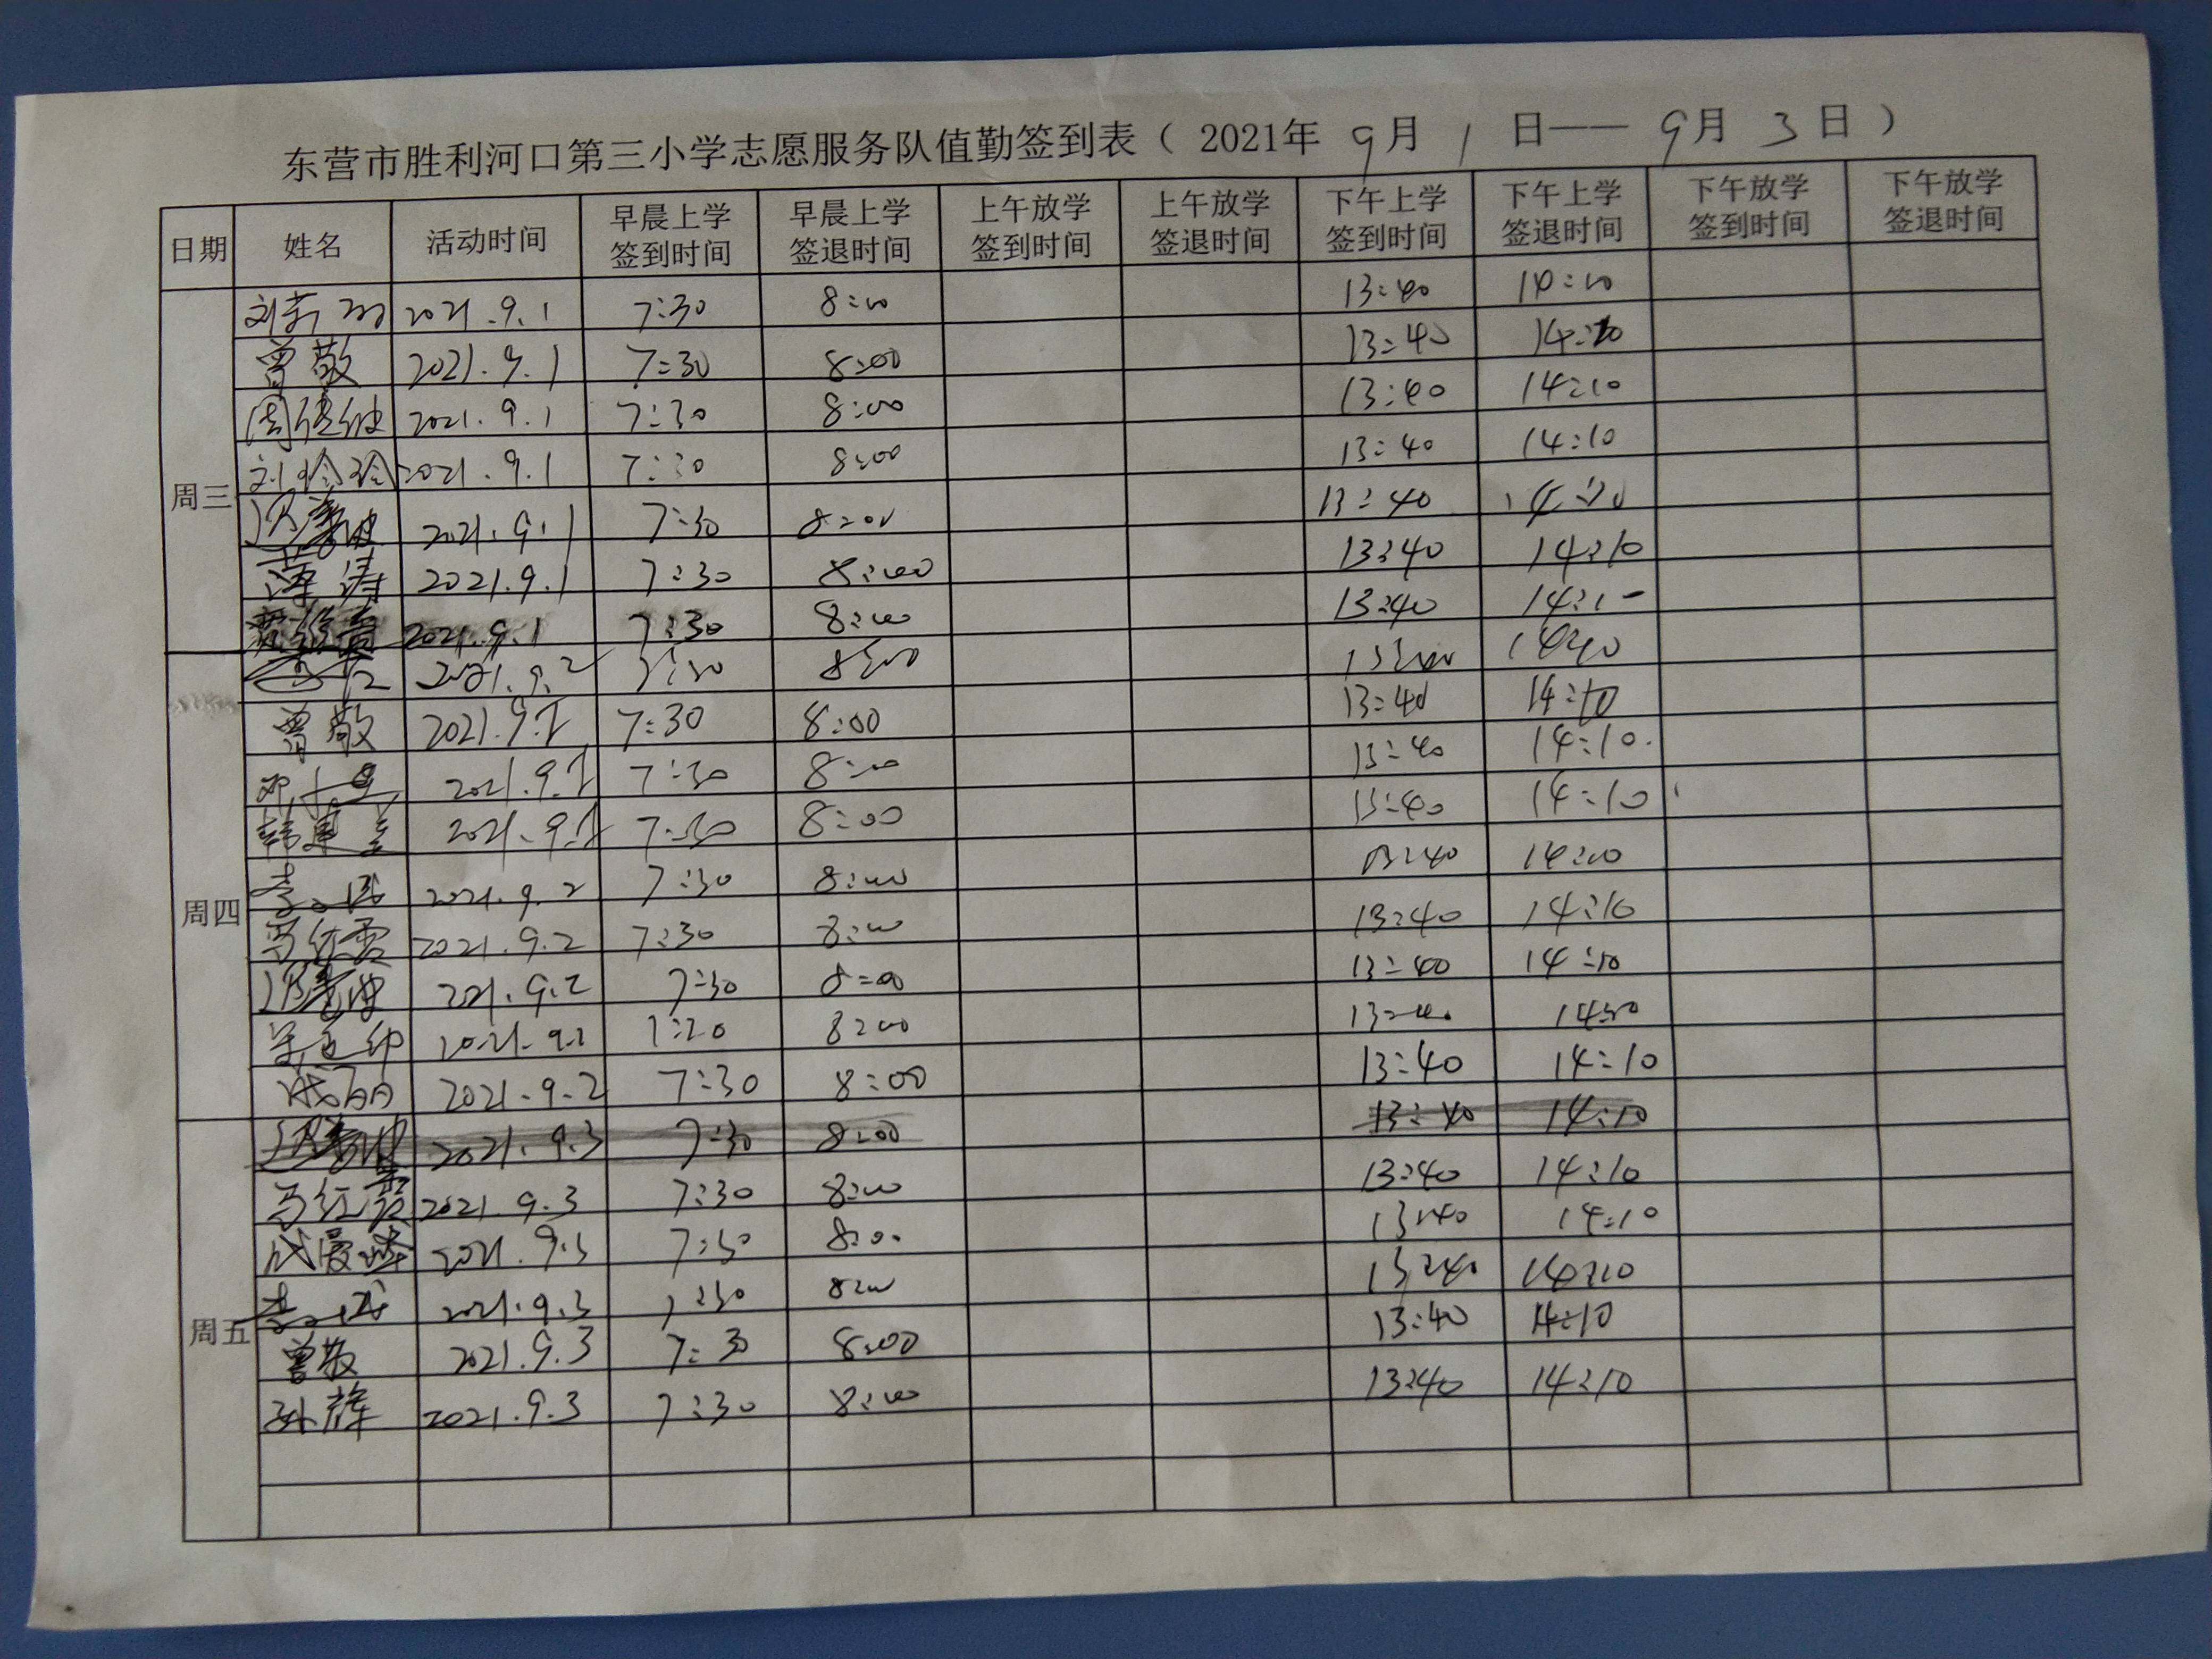 东营市胜利河口第三小学志愿服务队值勤签到表（ 2021年 9月 1 日—— 9月 3日 ）
日期 姓名 活动时间 早晨上学签到时间 早晨上学签退时间 上午放学签到时间 上午放学签退时间 下午上学签到时间 下午上学签退时间 下午放学签到时间 下午放学签退时间
周三
2021.9.1 7:30 8:00 13:40 14:10
曾敬 2021.9.1 7:30 8:00 13:40 14:10
2021.9.1 7:30 8:00 13:40 14:10
刘玲玲 2021.9.1 7:30 8:00 13:40 14:10
2021.9.1 7:30 8:00 13:40 14:10
薄涛 2021.9.1 7:30 8:00 13:40 14:10
2021.9.1 7:30 8:00 13:40 14:10
周四
2021.9.2 7:30 8:00 14:10
曾敬 2021.9.2 7:30 8:00 13:40 14:10
2021.9.2 7:30 8:00 13:40 14:10
韩建 2021.9.2 7:30 8:00 13:40 14:10
2021.9.2 7:30 8:00 13:40 14:10
2021.9.2 7:30 8:00 13:40 14:10
2021.9.2 7:30 8:00 13:40 14:10
2021.9.2 8:00 13:40 14:10
2021.9.2 7:30 8:00 13:40 14:10
周五
2021.9.3 7:30 8:00 13:40 14:10
马红 2021.9.3 7:30 8:00 13:40 14:10
2021.9.3 7:30 8:00 13:40 14:10
2021.9.3 7:30 8:00 13:40 14:10
曾敬 2021.9.3 7:30 8:00 13:40 14:10
孙辉 2021.9.3 7:30 8:00 13:40 14:10